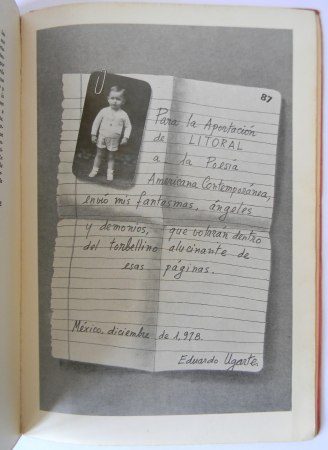 87
Para la Aportación
de LITORAL
a la Poesía
Americana Contemporánea,
envío mis fantasmas, ángeles
y demonios, que volarán dentro
del torbellino alucinante de
esas páginas.
México, diciembre de 1,978.
Eduardo Ugarte.